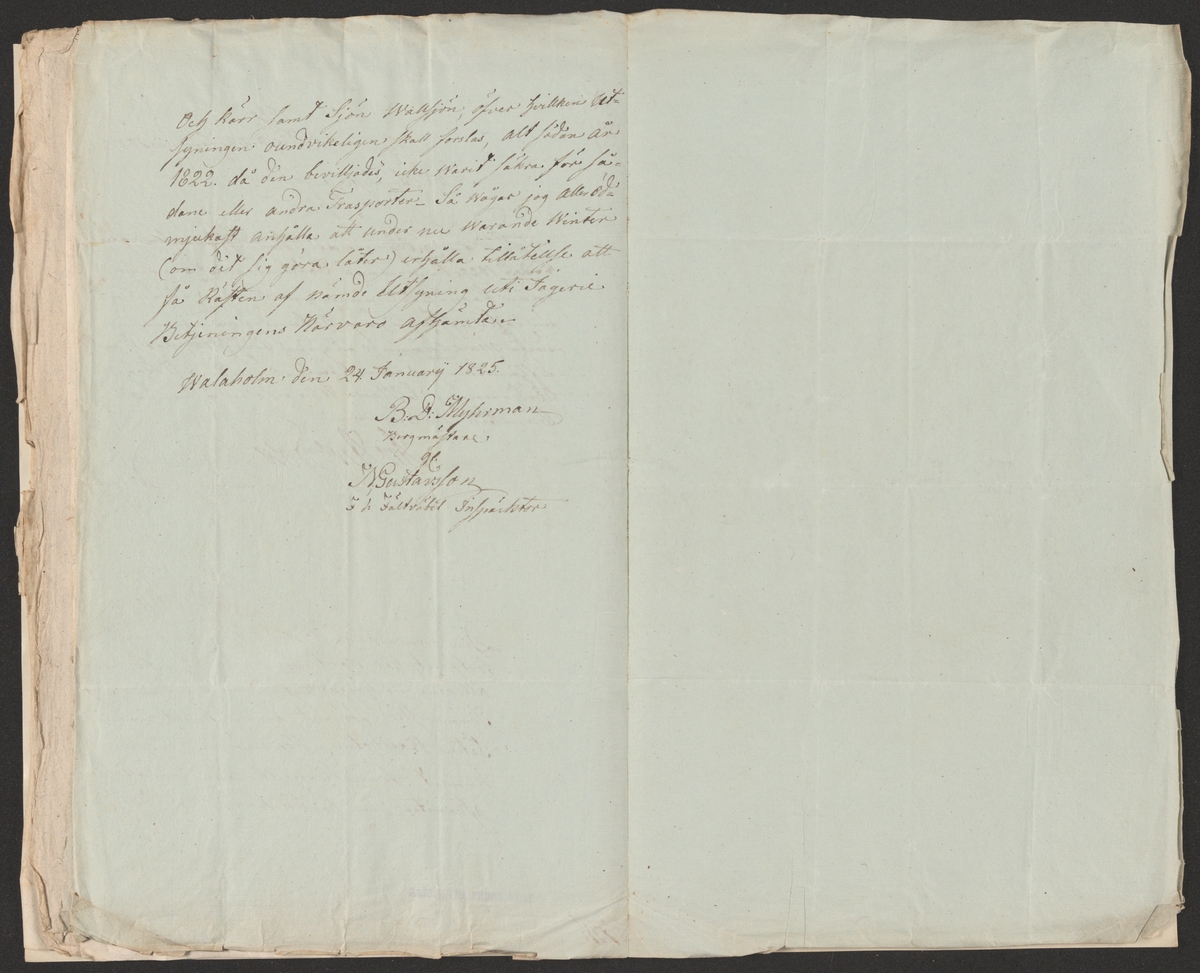 Och Kärr samt Sjön Wallsjön, öfver hvilken Ut-
syningen oundvikeligen skall forslas, alt sedan År
1822. då den beviljades, icke warit säkra för så-
dane eller andra Trasporter – Så wågar jag alleröd-
mjukast anhålla att under nu warande Winter
(om det sig göra låter) erhålla tillåtelse att
få Rästen af nämde Utsyning uti Jägerie
Betjeningens Närvaro afhämta.
Walaholm den 24 January 1825.
B: D: Myhrman
Bergmästare,
gl.
N Gustavsson
Inspäcktor